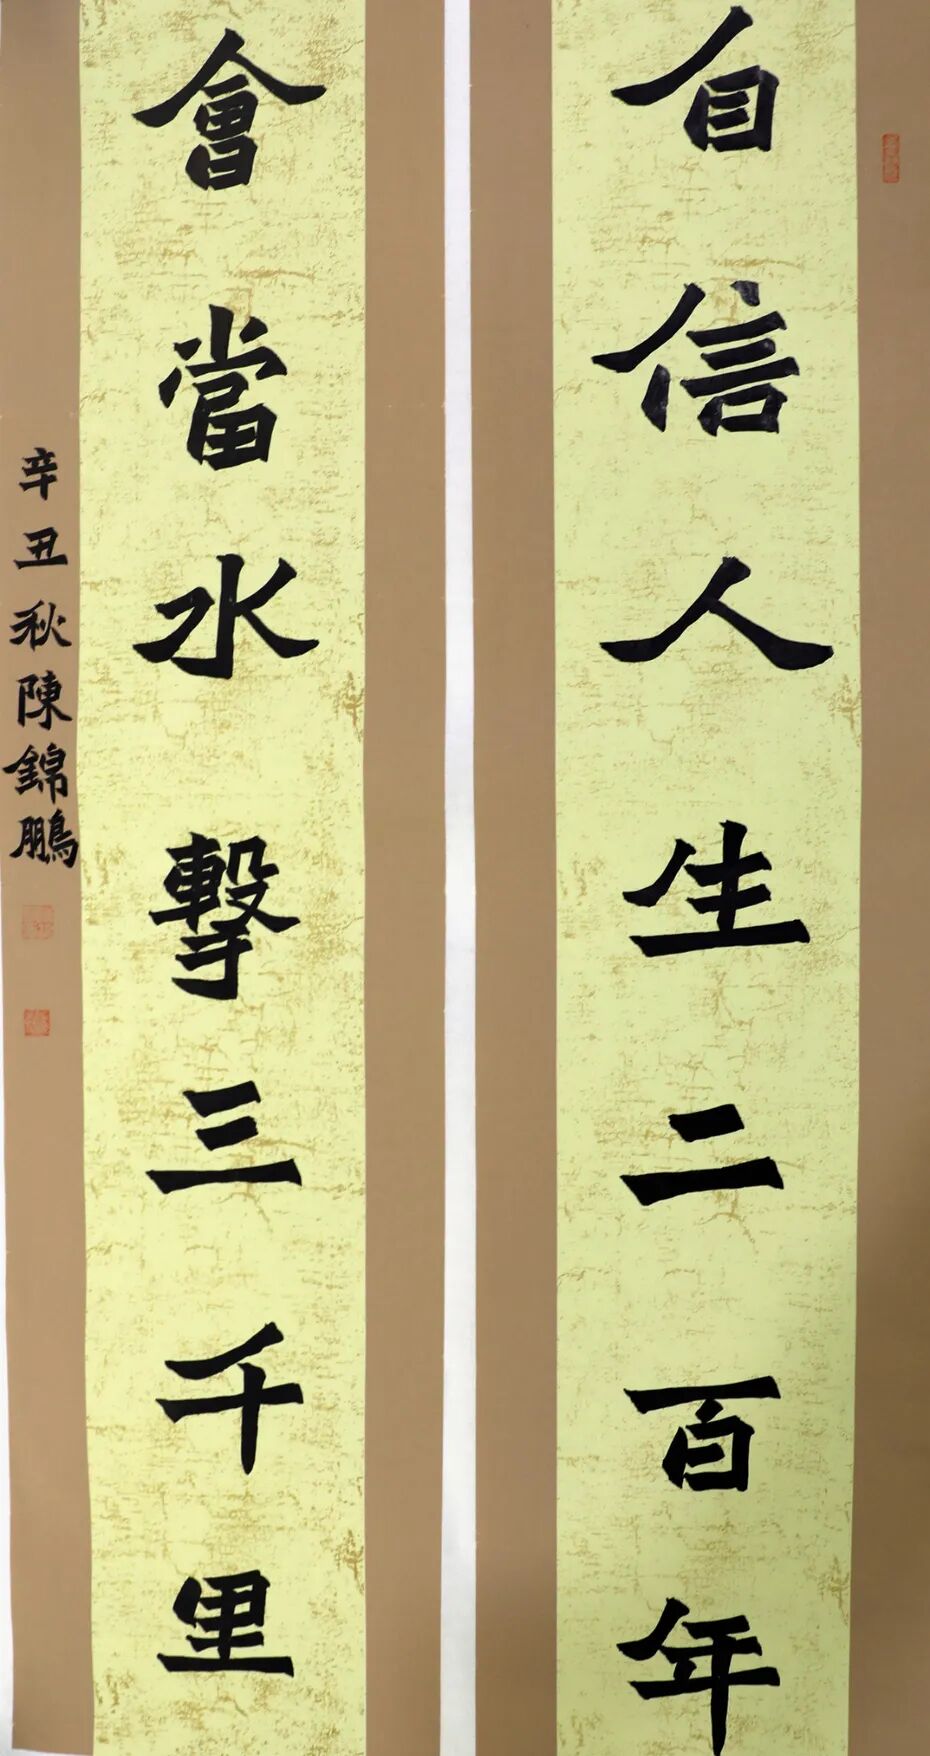 自信人生二百年
會當水擊三千里
辛丑秋陳錦鵬